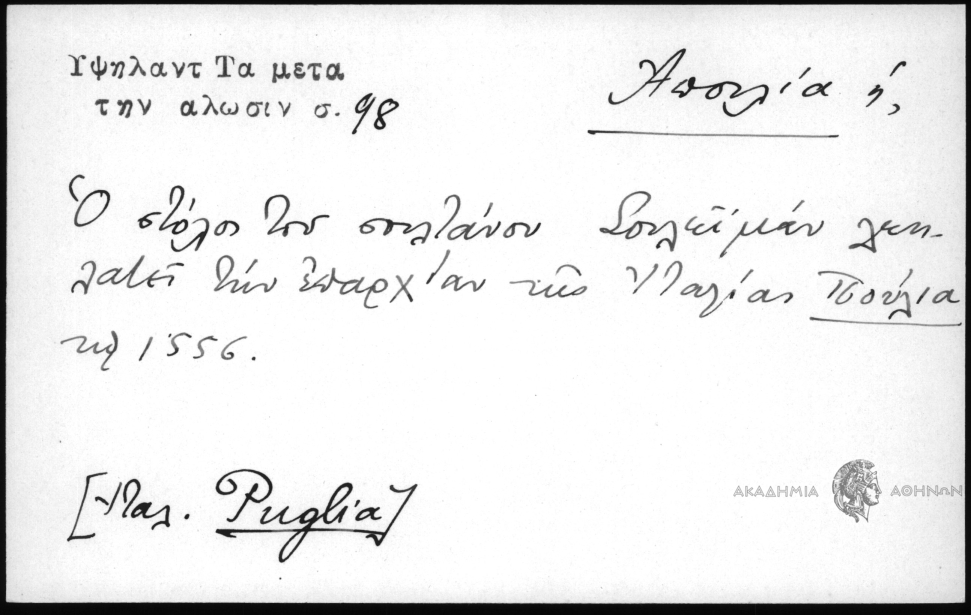 Υψηλαντ Τα μετα
την αλωσιν σ. 98
Ἀπουλία ἡ,
Ὁ στόλος τοῦ σουλτάνου Σουλεϊμάν λεη-
λατεῖ τὴν ἐπαρχίαν τῆς Ἰταλίας Πούλια
τῷ 1556.
[Ἰταλ. Puglia]
ΑΚΑΔΗΜΙΑ ΑΘΗΝΩΝ